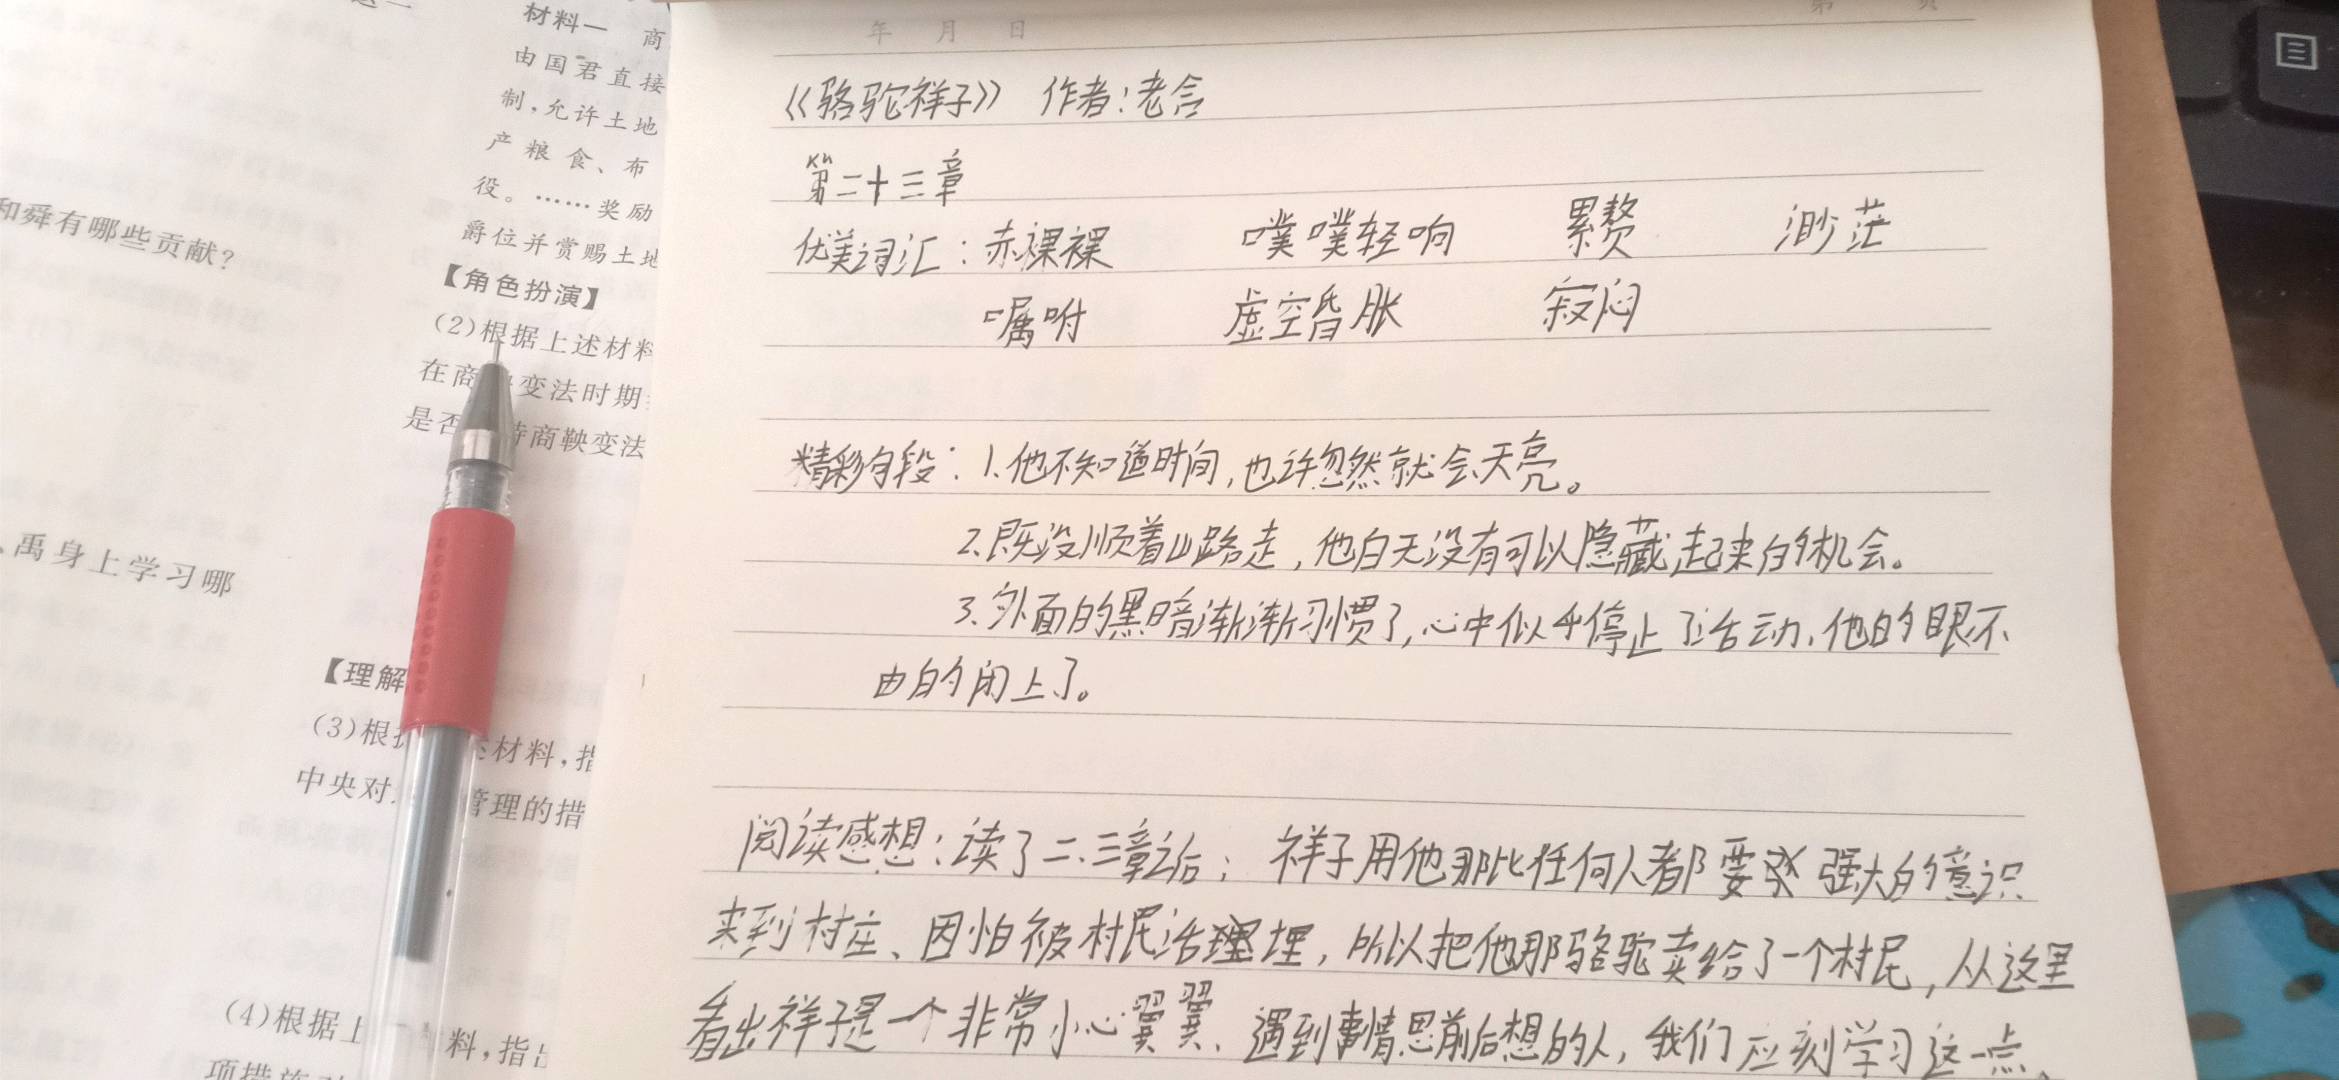 材料一 商
由国君直接
制,允许土地
产粮食、布
役。……奖励
爵位并赏赐土地
和舜有哪些贡献?
【角色扮演】
(2)根据上述材料
在商 变法时期
是否 持商鞅变法
、禹身上学习哪
【理解
(3)根据 材料,指
中央对 管理的措
(4)根据上 料,指出
项措施
年 月 日
第 页
《骆驼祥子》 作者:老舍
第二十三章
优美词汇:赤裸裸 噗噗轻响 累赘 渺茫
嘱咐 虚空昏胀 寂闷
精彩句段:1.他不知道时间,也许忽然就会天亮。
2.既没顺着山路走,他白天没有可以隐藏起来的机会。
3.外面的黑暗渐渐习惯了,心中似乎停止了活动,他的眼不
由的闭上了。
阅读感想:读了二、三章之后;祥子用他那比任何人都要强大的意识
来到村庄、因怕被村民活埋,所以把他那骆驼卖给了一个村民,从这里
看出祥子是一个非常小心翼翼、遇到事情思前后想的人,我们应刻学习这一点、